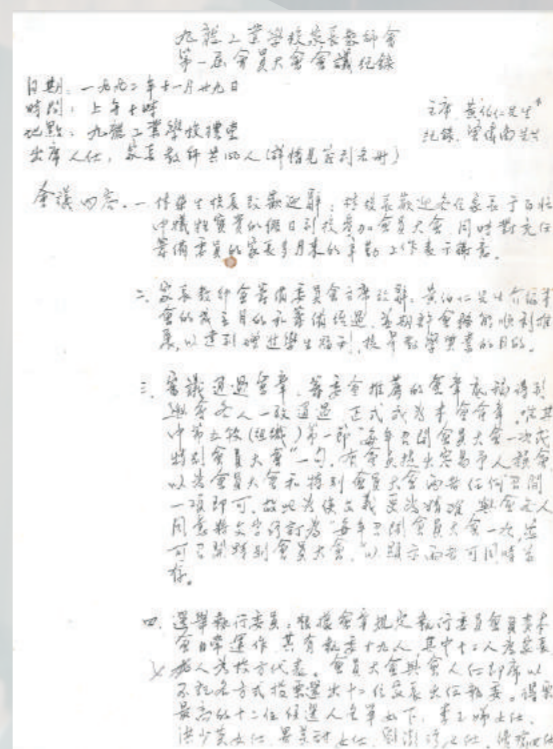 九龍工業學校家長教師會
第一屆會員大會會議紀錄
日期：一九九二年十一月廿九日
時間：上午十時
主席：黃伯仁先生
地點：九龍工業學校禮堂
紀錄：先生
出席人仕：家長教師共150人(詳情見簽到名冊)
會議內容：一、校長致歡迎辭：校長歡迎各位家長于百忙
中犧牲寶貴的假日到校參加會員大會，同時對充任
籌備委員的家長多月來的辛勤工作表于謝意。
二、家長教師會籌備委員會主席致辭：黃伯仁先生介紹本
會的成立目的和籌備經過，並期盼會務能順利推
展，以達到增進學生福利，提昇教學質素的目的。
三、審議通過會章：籌委會推薦的會章底稿得到
與會各人一致通過，正式成為本會會章，惟其
中第五條(組織)第一節"每年召開會員大會一次或
特別會員大會"一句，有會員提出容易予人誤會
以為會員大會和特別會員大會兩者任何召開
一項即可，故此為使文義更為精確，與會各人
同意將文字修訂為"每年召開會員大會一次，並
可召開特別會員大會"，以顯示兩者可同時並
存。
四、選舉執行委員：根據會章規定執行委員會負責本
會日常運作，共有執委十九人，其中十二人為家長，
七人為校方代表。會員大會與會人仕即席以
不記名方式投票選出十二位家長出任執委。得票
最高的十二位候選人名單如下：李玉嬋女仕，
洪少英女仕，女仕，女仕，